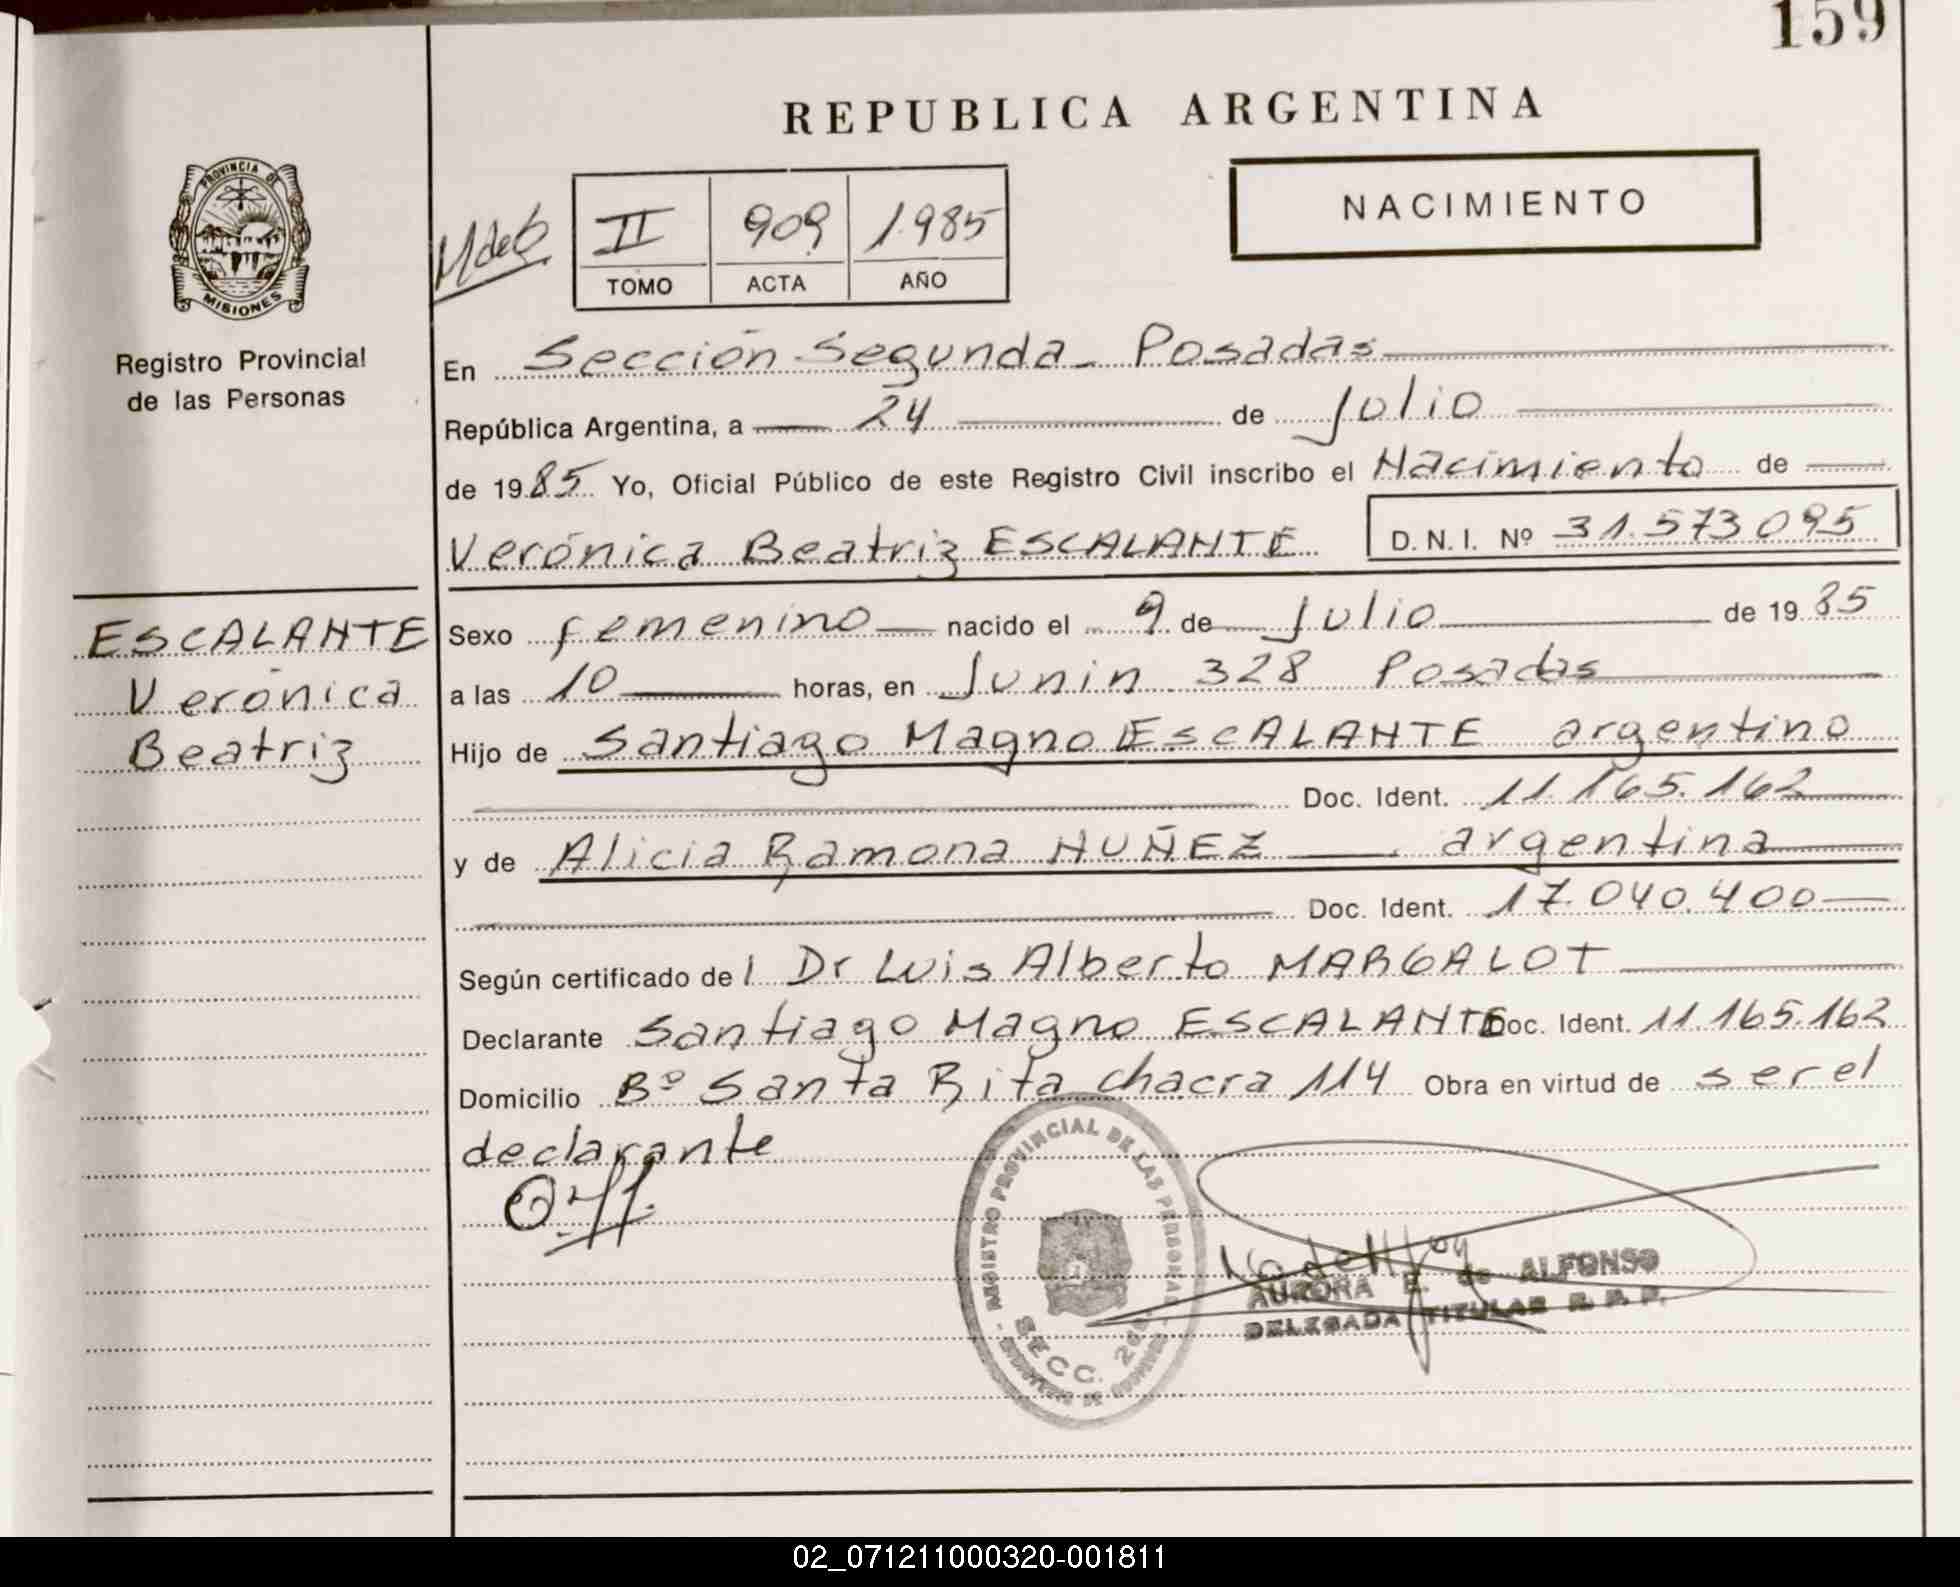 159
REPUBLICA ARGENTINA
NACIMIENTO
II 909 1.985
TOMO ACTA AÑO
PROVINCIA DE
MISIONES
Registro Provincial
de las Personas
En Sección Segunda - Posadas
República Argentina, a 24 de Julio
de 1985 Yo, Oficial Público de este Registro Civil inscribo el Nacimiento de
Verónica Beatriz ESCALANTE D. N. I. Nº 31.573.095
ESCALANTE
Verónica
Beatriz
Sexo femenino nacido el 9 de Julio de 1985
a las 10 horas, en Junin 328 Posadas
Hijo de Santiago Magno ESCALANTE argentino
Doc. Ident. 11.165.162
y de Alicia Ramona NUÑEZ argentina
Doc. Ident. 17.040.400
Según certificado del Dr Luis Alberto MARGALOT
Declarante Santiago Magno ESCALANTE Doc. Ident. 11.165.162
Domicilio Bº Santa Rita chacra 114 Obra en virtud de ser el
declarante
REGISTRO PROVINCIAL DE LAS PERSONAS
SECC. 2da
AURORA E. de ALFONSO
DELEGADA TITULAR R. P. P.
02_071211000320-001811